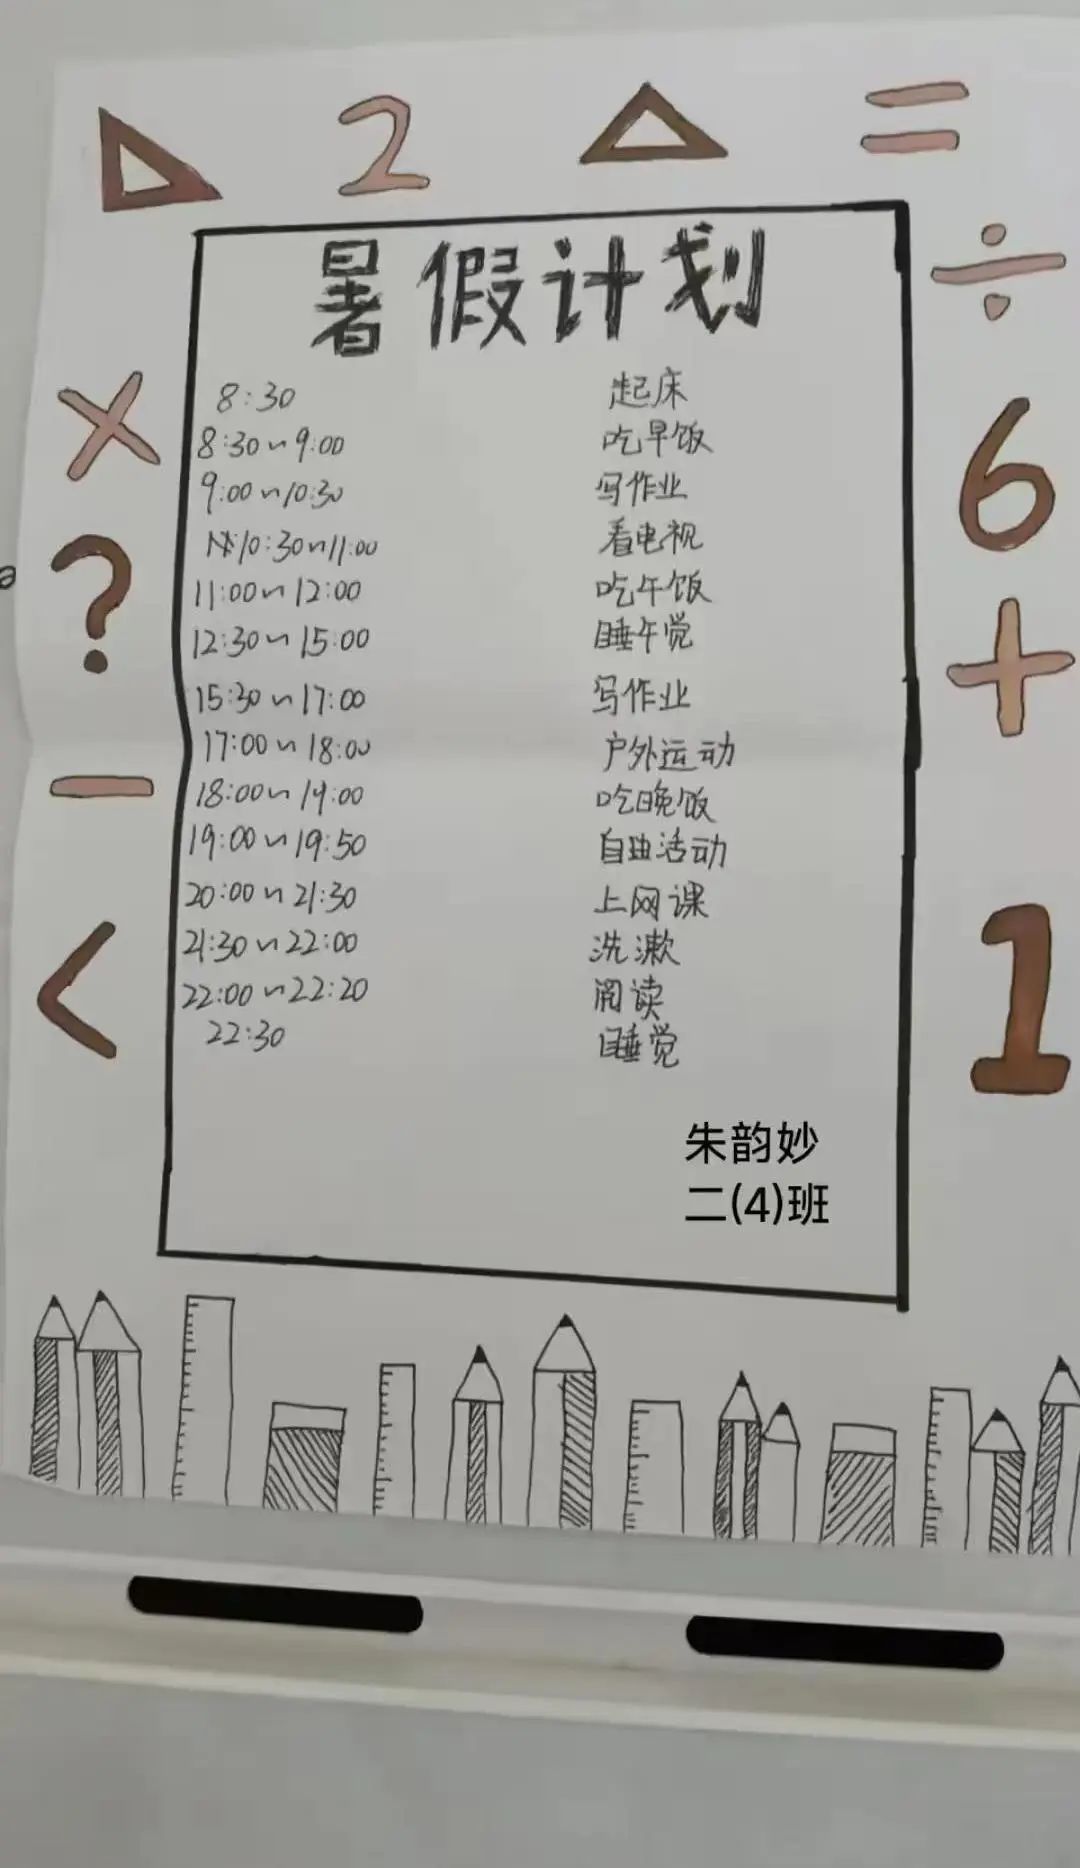 2
=
÷
×
6
?
+
-
<
1
暑假计划
8:30 起床
8:30~9:00 吃早饭
9:00~10:30 写作业
10:30~11:00 看电视
11:00~12:00 吃午饭
12:30~15:00 睡午觉
15:30~17:00 写作业
17:00~18:00 户外运动
18:00~19:00 吃晚饭
19:00~19:50 自由活动
20:00~21:30 上网课
21:30~22:00 洗漱
22:00~22:20 阅读
22:30 睡觉
朱韵妙
二(4)班